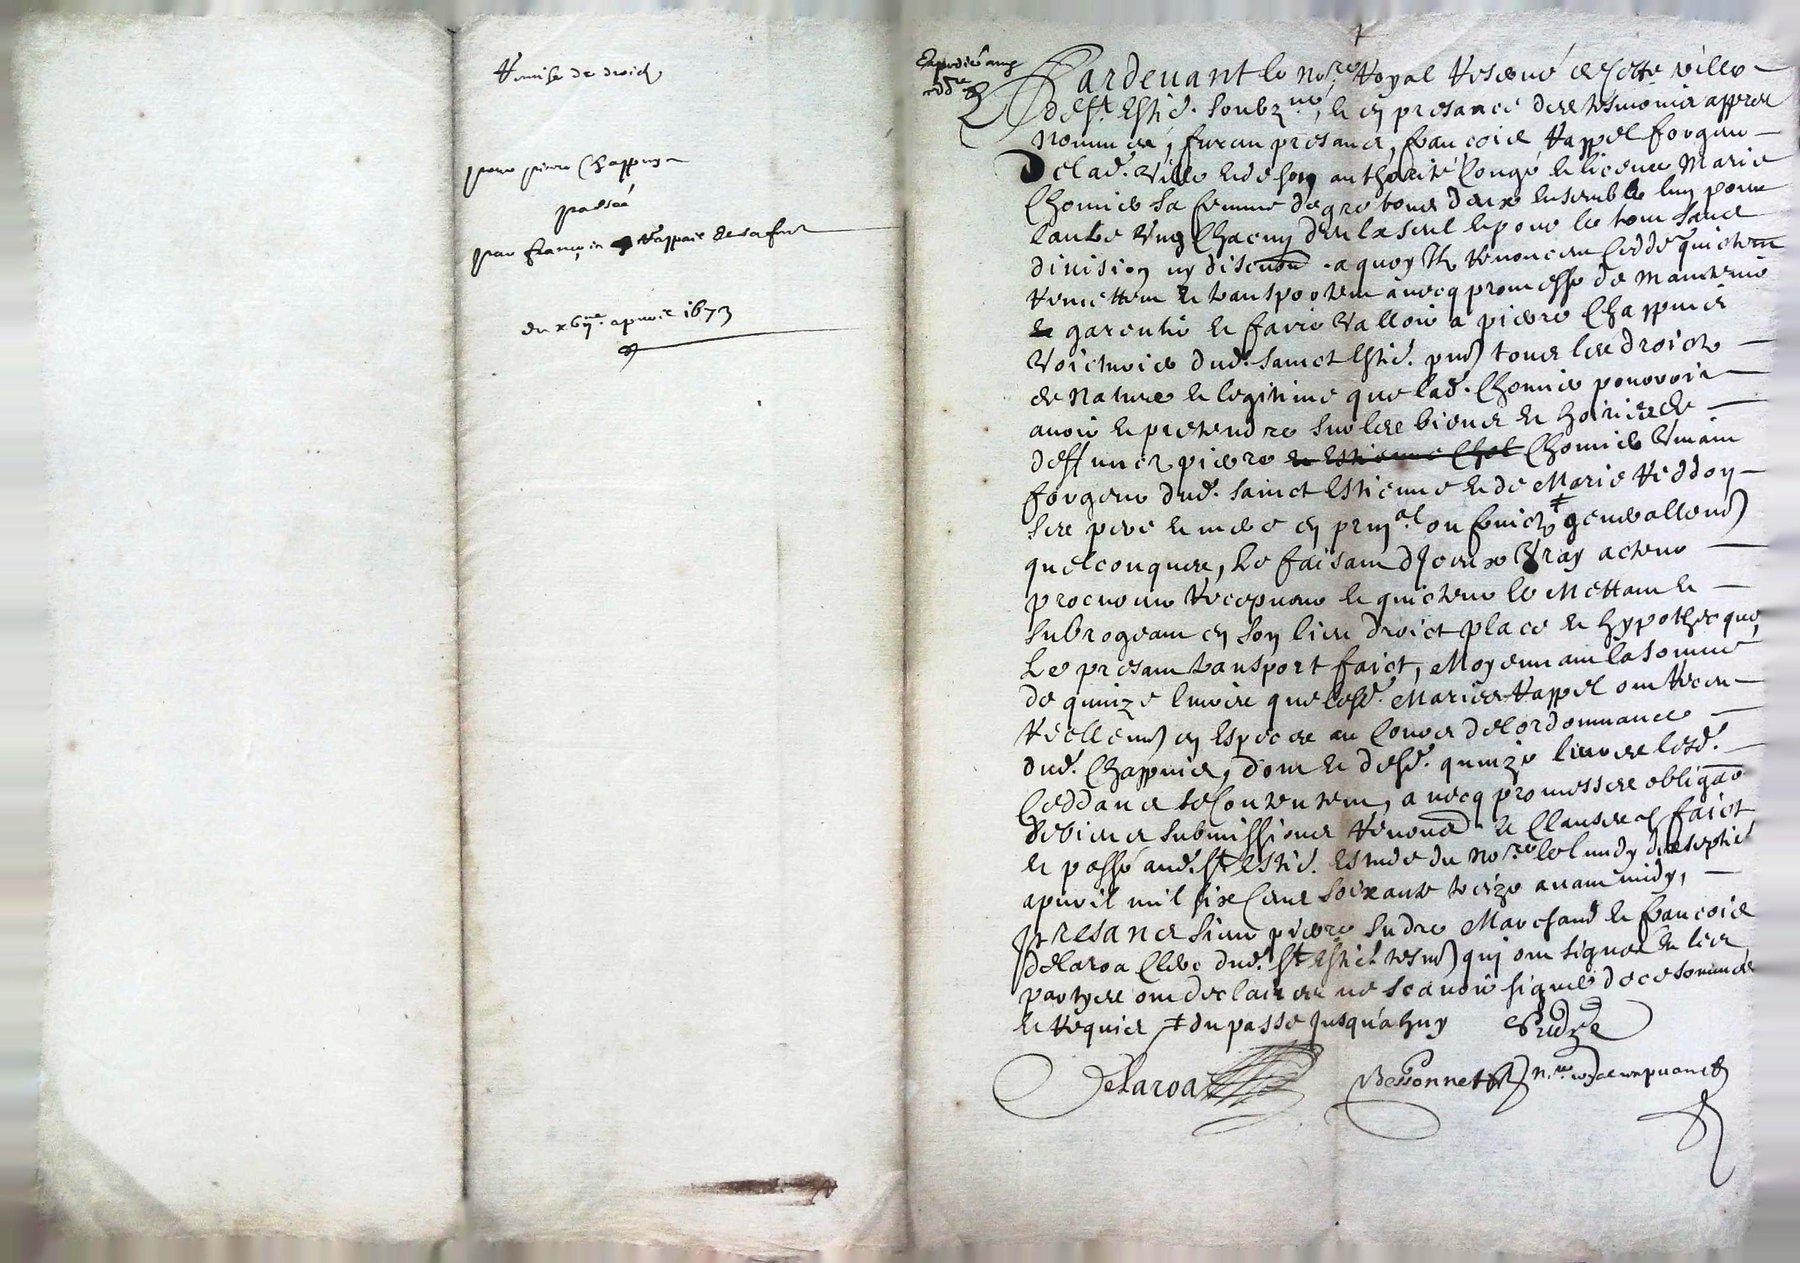 Remise de droictz
pour pierre Chappuys
passée
par françois Rappaic et sa fem̄e
du xbii.me apuril 1673
Expedié aux
Pardeuant le no.re Royal Reserué de Cette ville
de S.t Esti.e soubz.né, et en presance des tesmoins appres
nommés, furent presants, francois Rappel forgeur
de lad. ville et de son authorité Congé et licence Marie
Chomier sa femme de gre tous deux ensemble luy pour
lautre Ung Chacung deux la seul et pour le tout sans
diuision ny discuon̄ a quoy Ilz Renoncent Cedde quictent
Remettent et transportent auecq promesse de maintenir
garentir et faire Valloir a pierre Chappuis
Voicturier dud. sainct Esti.e pnt tous les droictz
de Nature et legitime que lad. Chomier pouuoit
auoir et pretendre sur les biens et hoiries de
deffunctz pierre et Estienne Chol Chomier Viuant
forgeur dud. sainct Estienne et de Marie Reddon
ses pere et mere en prin.al ou fruictz ‡ generallem̄t
quelconques, Le faisant diceux Vray acteur
procureur Recepueur et quicteur le Mettant et
subrogeant en son lieu droict place et hypothecque,
Le presant transport faict, Moyennant la somme
de quinze liures que lesd. Mariés Rappel ont Receu
Reellem̄t en Especes au Cours de lordonnance
dud. Chappuis, dont et desd. quinze liures lesd.
Ceddants se Contentent, auecq promesses obligaōn
de biens submissions Renonc. et Clauses, faict
et passé aud. S.t Esti.e Estude du no.re le lundy dixseptie
apuril mil six Cens soixante treize auant midy,
Presants sieur pierre sudre Marchand et francois
delaroa Clerc dud. S.t Esti.e tesm̄ qui ont signé et les
partyes ont declairé ne scauoir signer de ce sommés
et Requis ‡ du passé Jusqu'a huy Sudre
Delaroa
Bessonnet n.re